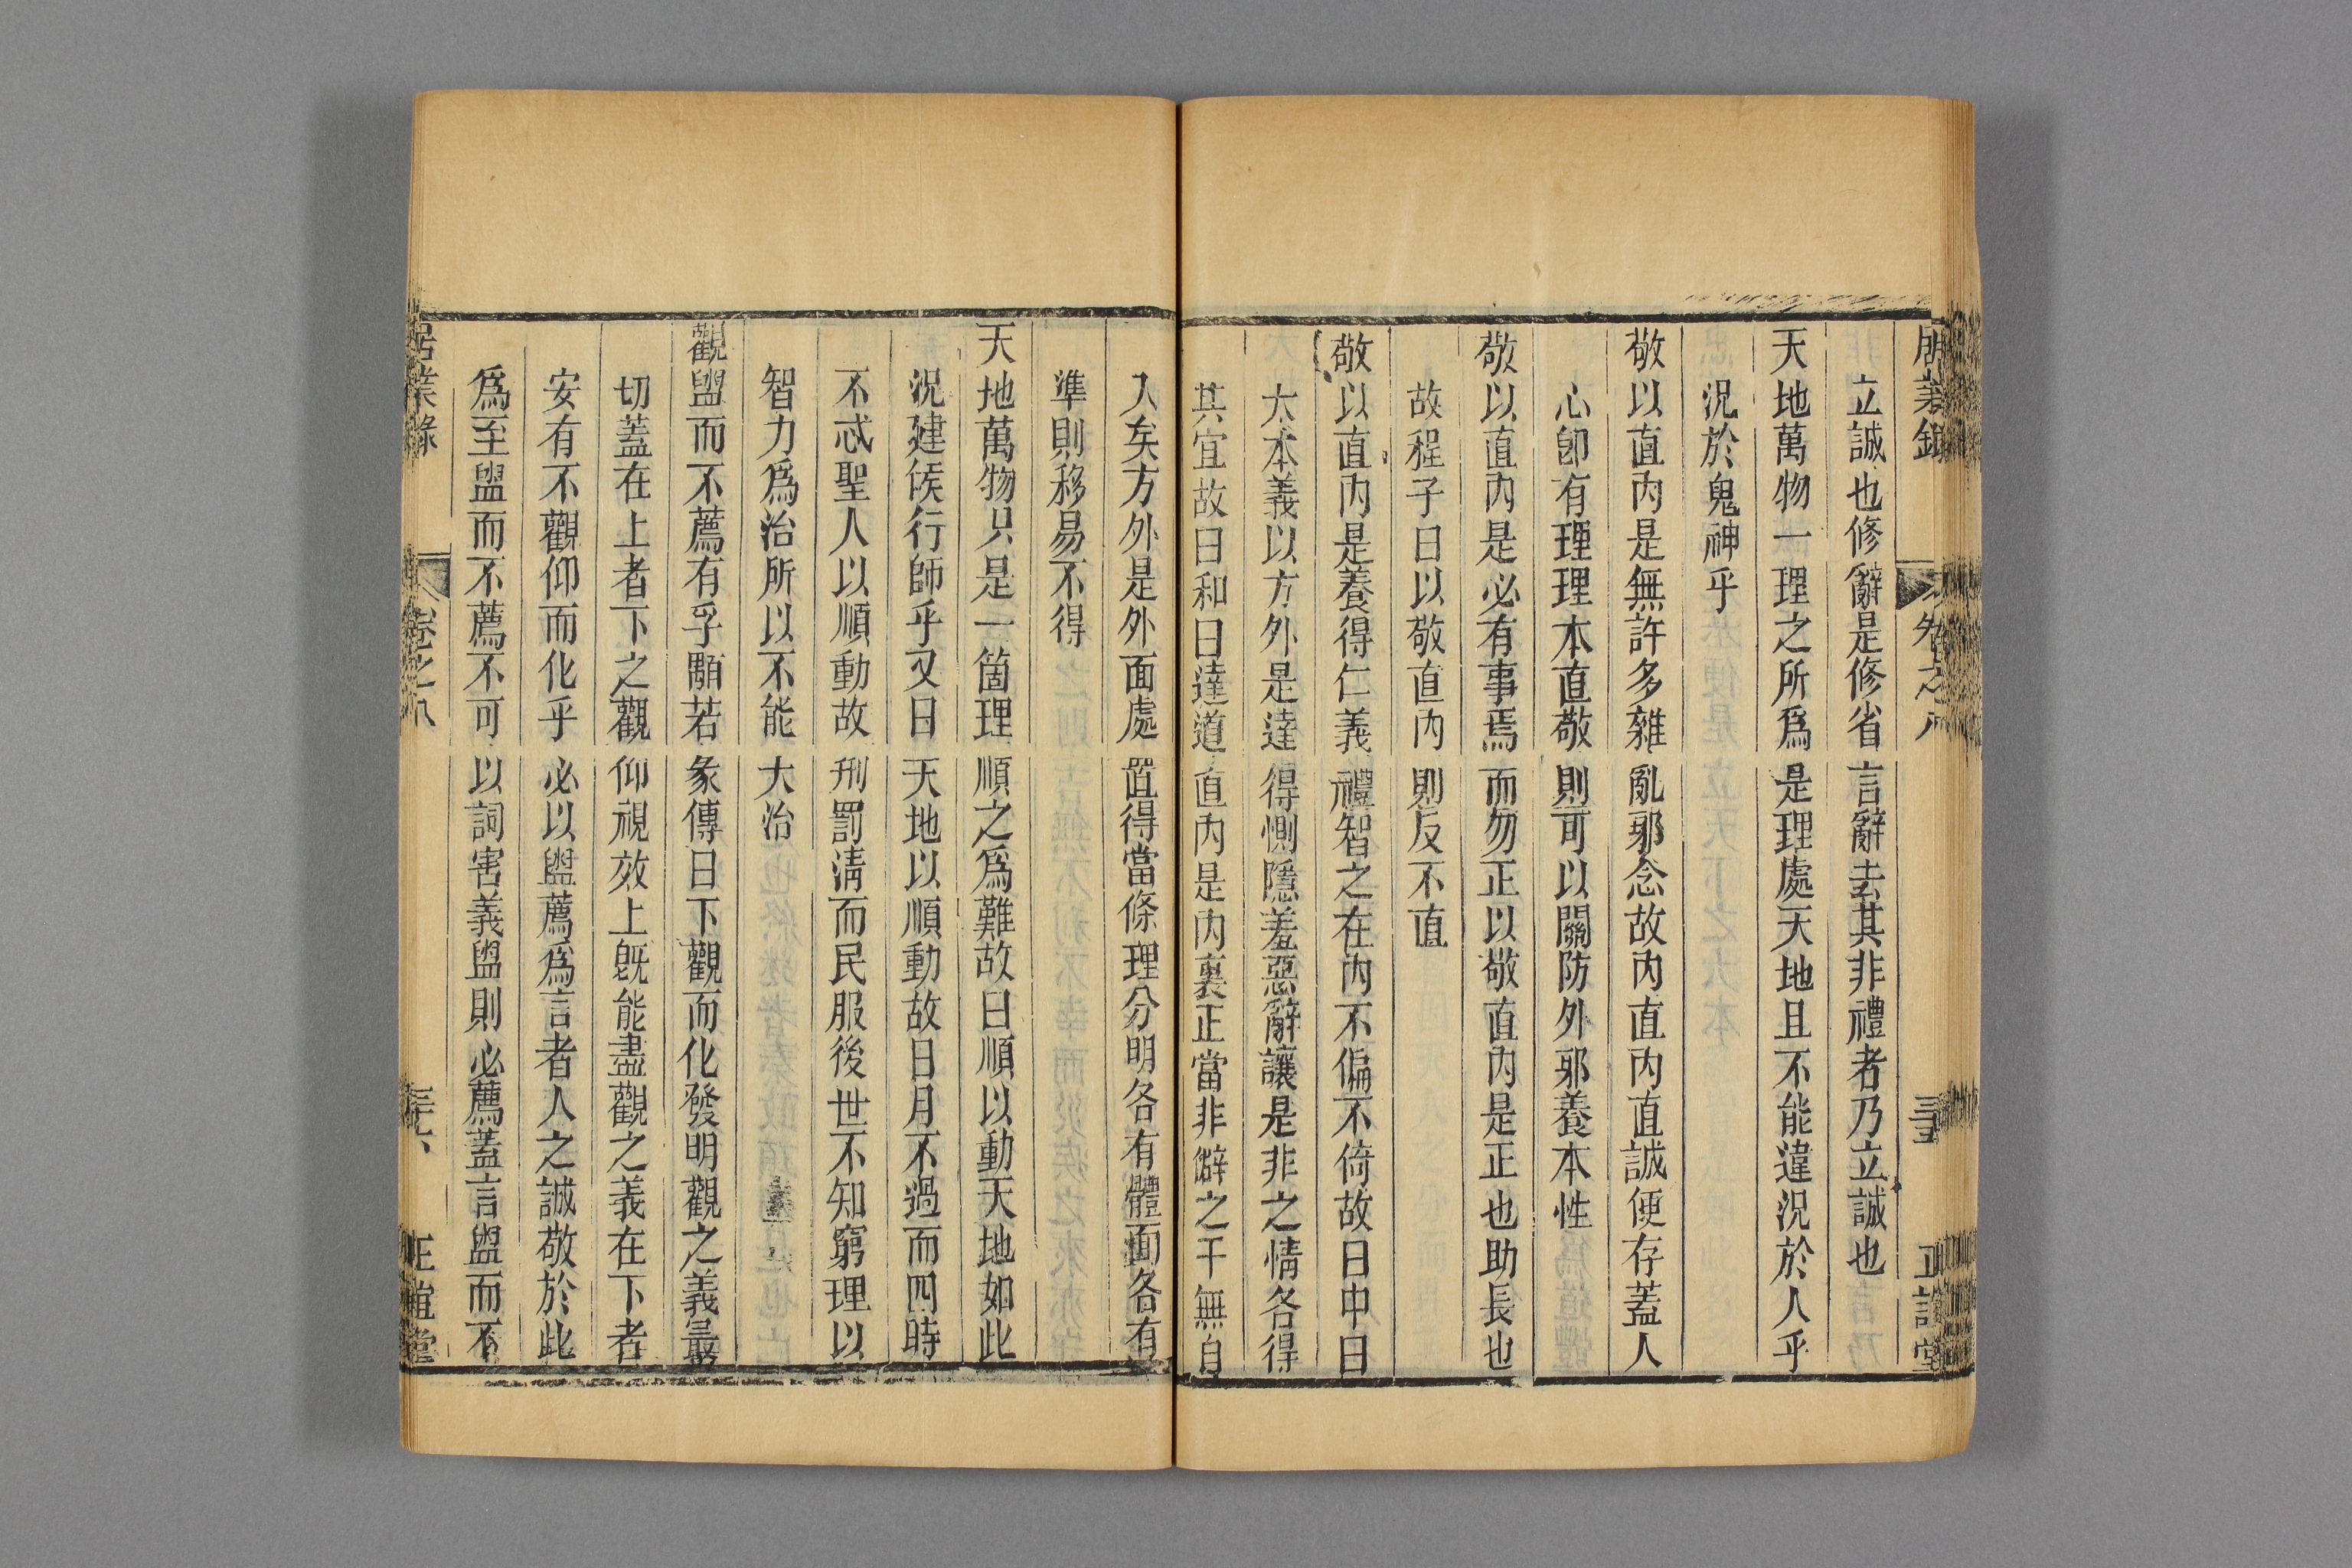 居業録 卷之八 三五 正誼堂
立誠也修辭是修省言辭去其非禮者乃立誠也
天地萬物一理之所爲是理處天地且不能違況於人乎
況於鬼神乎
敬以直内是無許多雜亂邪念故内直内直誠便存蓋人
心卽有理理本直敬則可以關防外邪養本性
敬以直内是必有事焉而勿正以敬直内是正也助長也
故程子曰以敬直内則反不直
敬以直内是養得仁義禮智之在内不偏不倚故曰中曰
大本義以方外是達得惻隱羞惡辭讓是非之情各得
其宜故曰和曰達道直内是内裏正當非僻之干無自
入矣方外是外面處置得當條理分明各有體面各有
準則移易不得
天地萬物只是一箇理順之爲難故曰順以動天地如此
況建侯行師乎又曰天地以順動故日月不過而四時
不忒聖人以順動故刑罰淸而民服後世不知窮理以
智力爲治所以不能大治
觀盥而不薦有孚顒若彖傳曰下觀而化發明觀之義最
切蓋在上者下之觀仰視效上旣能盡觀之義在下者
安有不觀仰而化乎必以盥薦爲言者人之誠敬於此
爲至盥而不薦不可以詞害義盥則必薦蓋言盥而不
居業錄 卷之八 三六 正誼堂